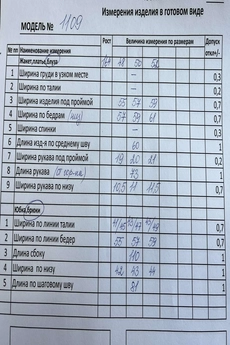 Измерения изделия в готовом виде
МОДЕЛЬ № 1109
№ пп Наименование измерения Рост Величина измерения по размерам Допуск откл+/-
Жакет, платье, блуза 164 48 50 52
1 Ширина груди в узком месте - 0,3
2 Ширина по талии - 0,2
3 Ширина изделия под проймой 55 57 59 0,7
4 Ширина по бедрам (низ) 57 59 61 0,7
5 Ширина спинки - 0,3
6 Длина изд-я по среднему шву 60 0,2
7 Ширина рукава под проймой 19 20 21 0,2
8 Длина рукава 73 1
9 Ширина рукава по низу 10,5 11 11,5 0,7
Юбка, брюки
1 Ширина по линии талии 0,7
2 Ширина по линии бедер 55 57 59 0,7
3 Длина сбоку 110 1
4 Ширина по низу 42 43 44 1
5 Длина по шаговому шву 81 1